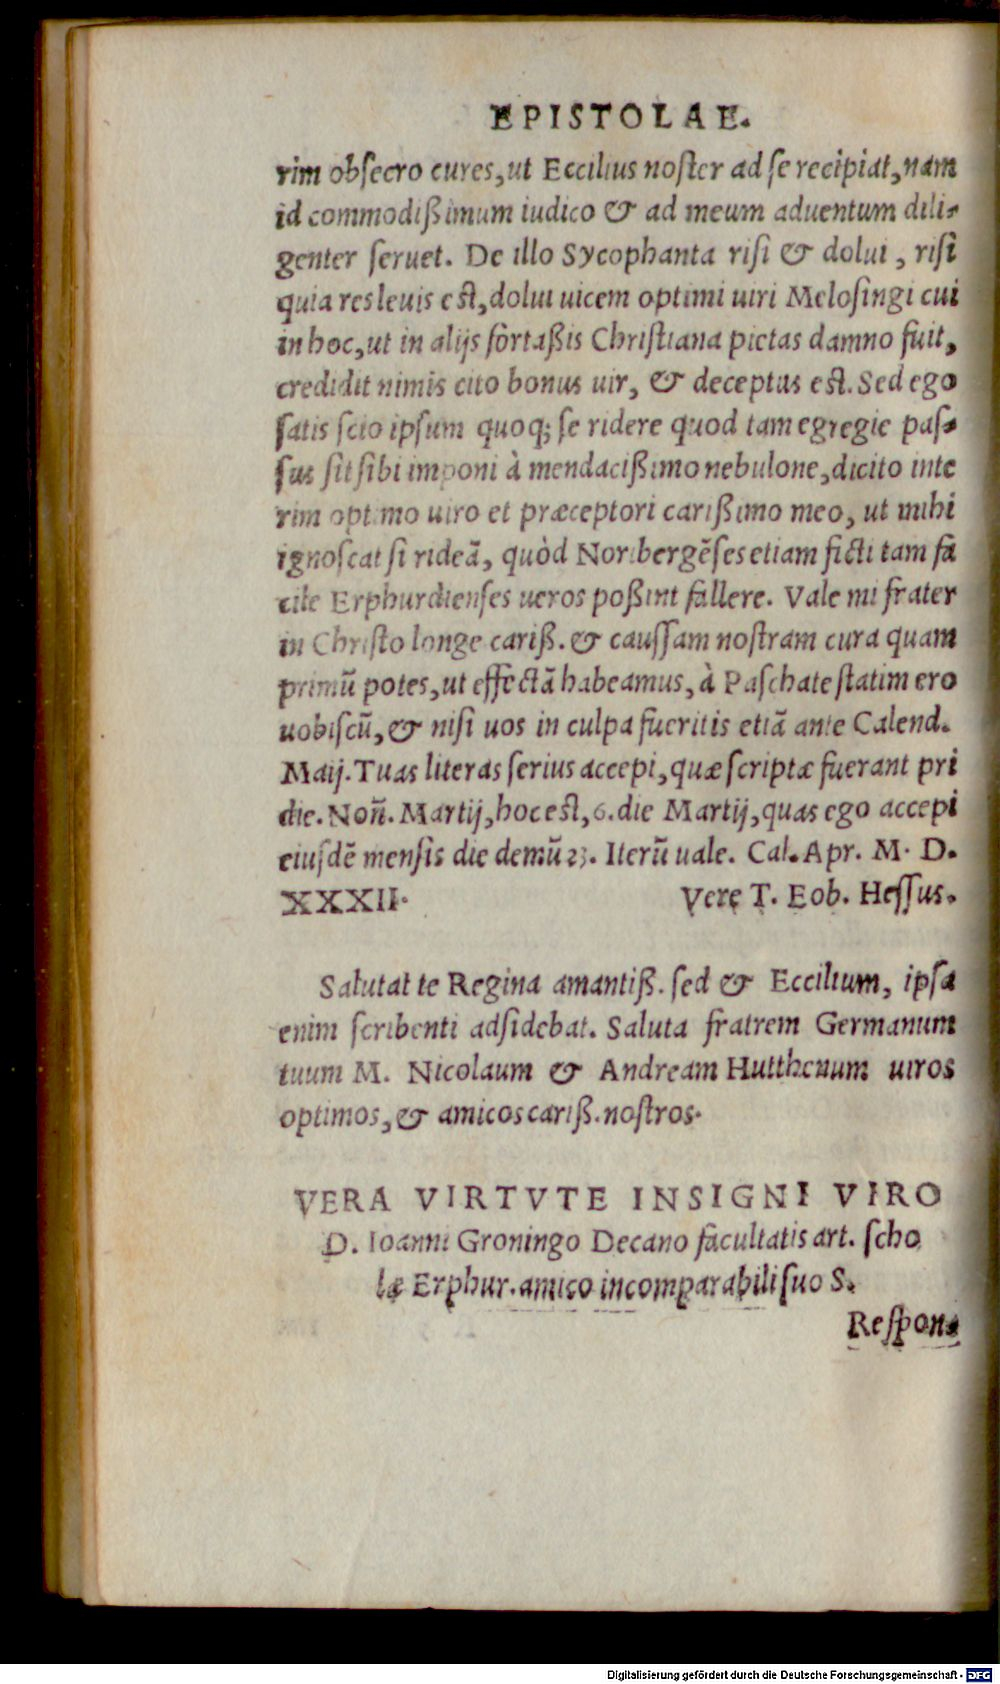 EPISTOLAE.
rim obſecro cures, ut Eccilius noſter ad ſe recipiat, nam
id commodiſsimum iudico & ad meum aduentum dili-
genter ſeruet. De illo Sycophanta riſi & dolui, riſi
quia res leuis eſt, dolui uicem optimi uiri Meloſingi cui
in hoc, ut in alijs fortaſsis Chriſtiana pietas damno fuit,
credidit nimis cito bonus uir, & deceptus eſt. Sed ego
ſatis ſcio ipſum quoq; ſe ridere quod tam egregie paſ-
ſus ſit ſibi imponi à mendaciſsimo nebulone, dicito inte
rim optimo uiro et præceptori cariſsimo meo, ut mihi
ignoſcat ſi rideã, quòd Noribergẽſes etiam ficti tam fa
cile Erphurdienſes ueros poſsint fallere. Vale mi frater
in Chriſto longe cariſs. & cauſſam noſtram cura quam
primũ potes, ut effectã habeamus, à Paſchate ſtatim ero
uobiſcũ, & niſi uos in culpa fueritis etiã ante Calend.
Maij. Tuas literas ſerius accepi, quæ ſcriptæ fuerant pri
die. Noñ. Martij, hoc eſt, 6. die Martij, quas ego accepi
eiuſdẽ menſis die demũ 23. Iterũ uale. Cal. Apr. M. D.
XXXII. Vere T. Eob. Heſſus.
Salutat te Regina amantiſs. ſed & Eccilium, ipſa
enim ſcribenti adſidebat. Saluta fratrem Germanum
tuum M. Nicolaum & Andream Hutthenum uiros
optimos, & amicos cariſs. noſtros.
VERA VIRTVTE INSIGNI VIRO
D. Ioanni Groningo Decano facultatis art. ſcho
læ Erphur. amico incomparabili ſuo S.
Reſpon-
Digitalisierung gefördert durch die Deutsche Forschungsgemeinschaft - DFG